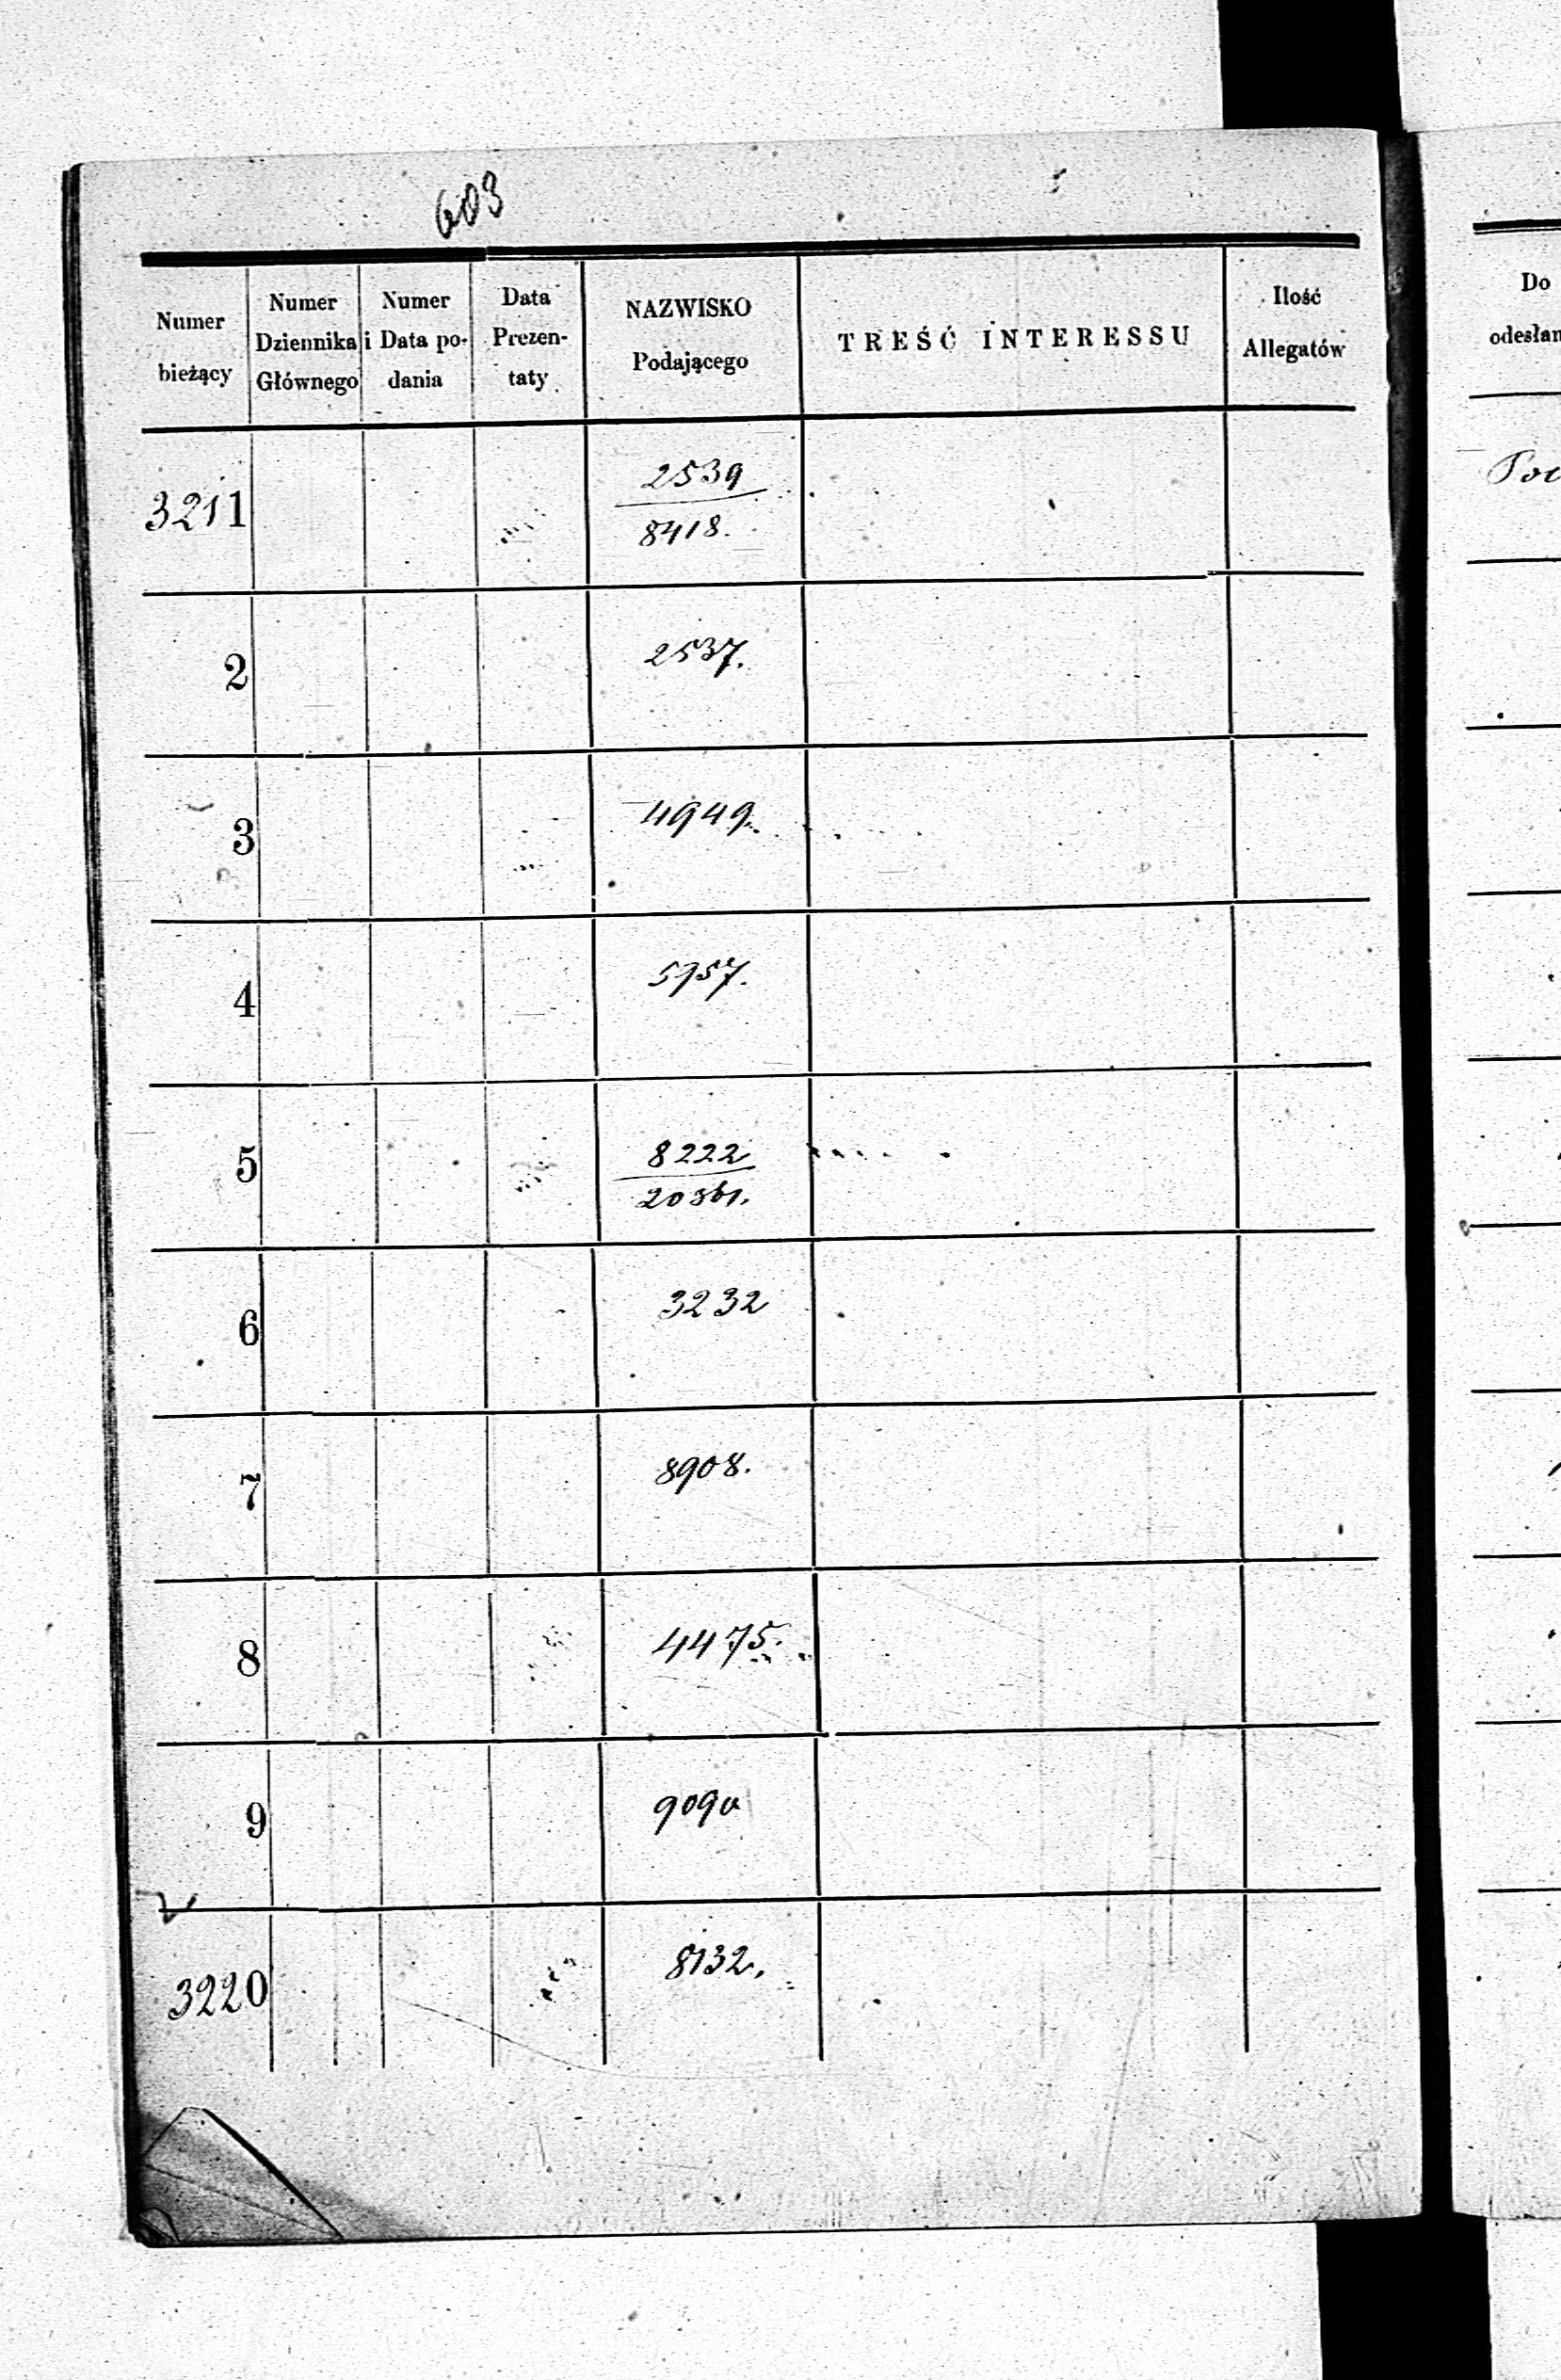 603
Numer bieżący
Numer Dziennika Głównego
Numer i Data podania
Data Prezentaty
NAZWISKO Podającego
TREŚĆ INTERESSU
Ilość Allegatów
Do
3211
2539
8418.
2
2537.
3
4949.
4
5957.
5
8222
20361.
6
3232
7
8908.
8
4475.
9
9090
3220
8132.